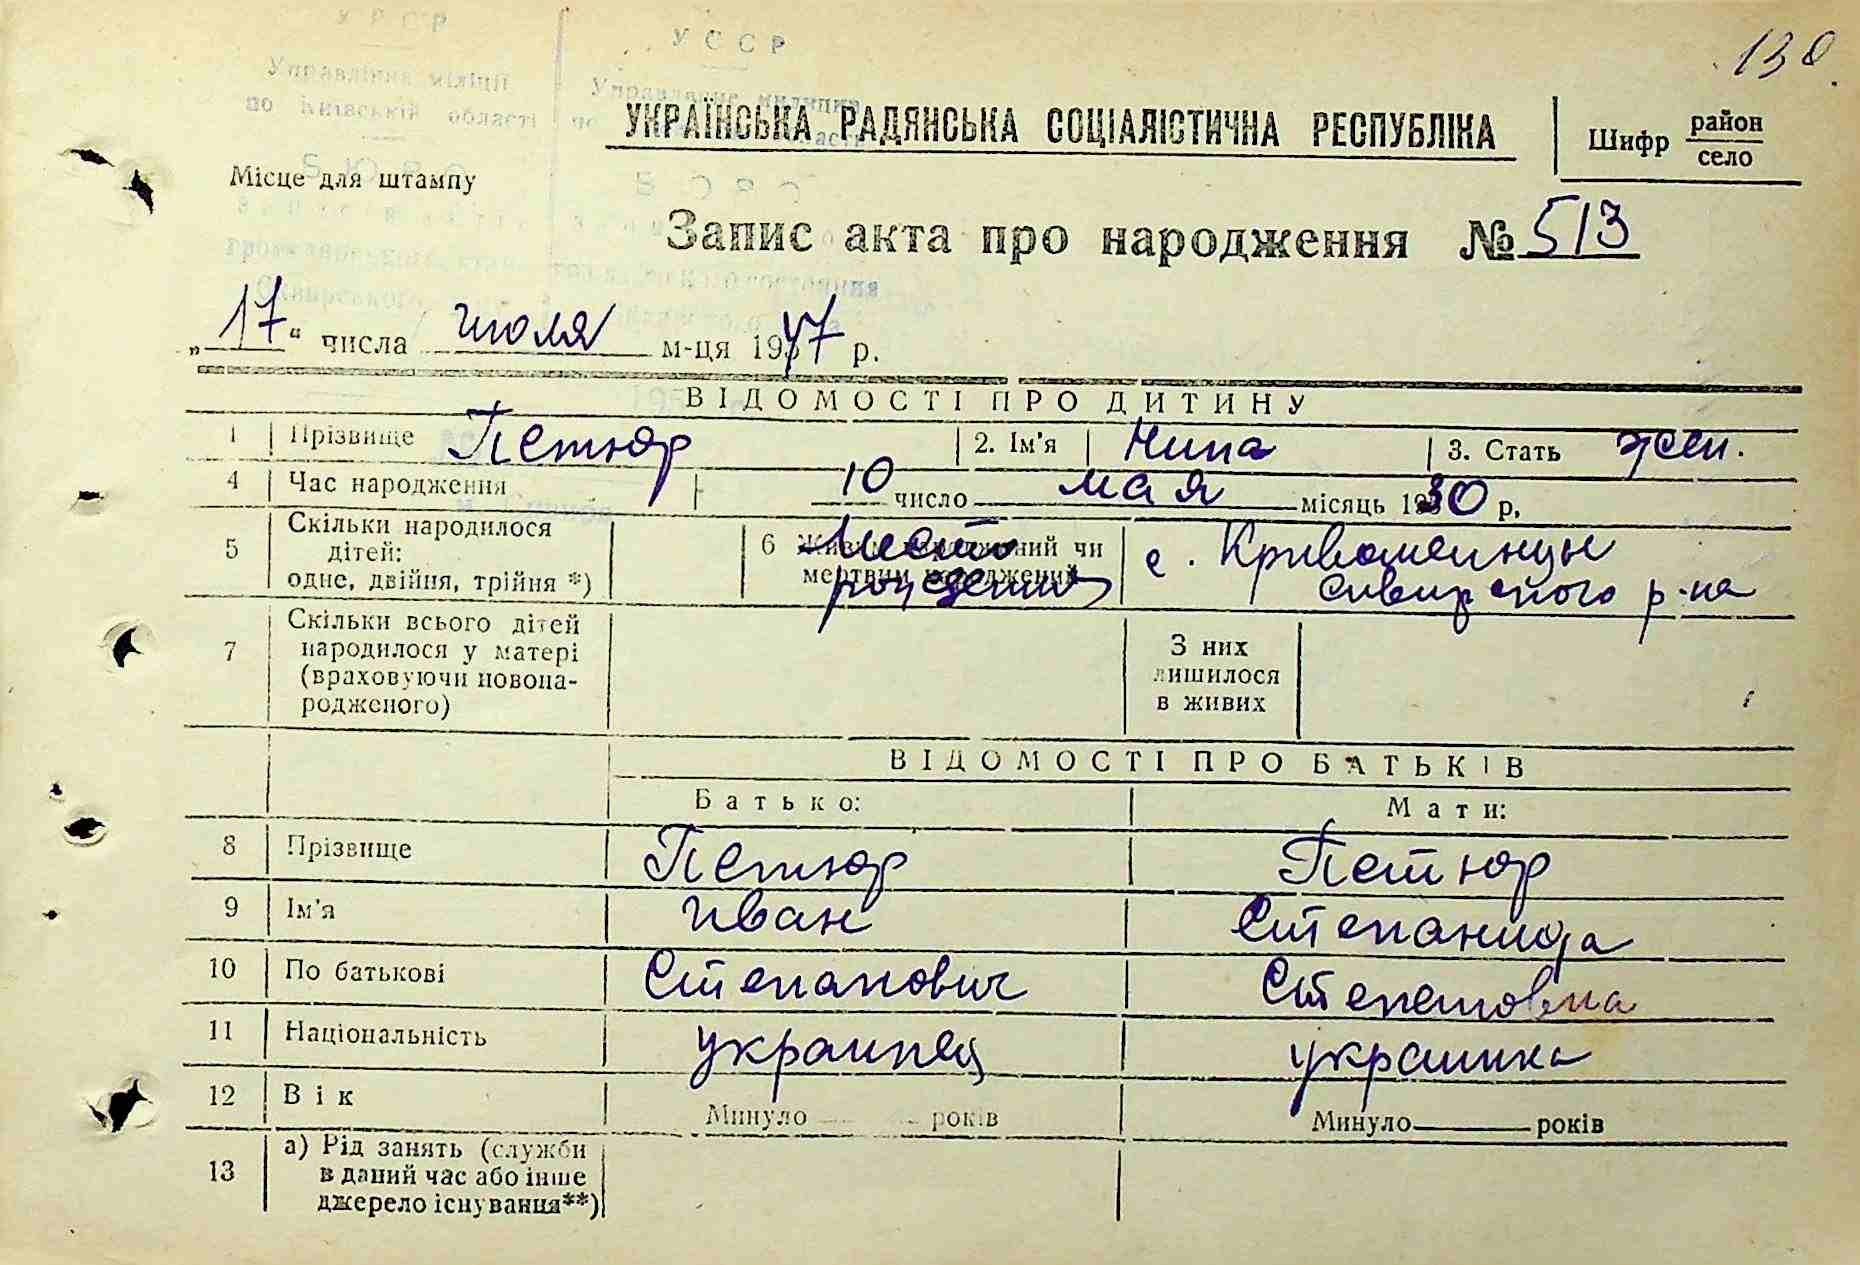 130
УРСР
УССР
Управління міліції
по Київській області
Місце для штампу
УКРАЇНСЬКА РАДЯНСЬКА СОЦІАЛІСТИЧНА РЕСПУБЛІКА
Шифр район
село
Запис акта про народження № 513
„17“ числа июля м-ця 1947 р.
ВІДОМОСТІ ПРО ДИТИНУ
1 Прізвище Петюр 2. Ім'я Нина 3. Стать жен.
4 Час народження 10 число мая місяць 1930 р.
5 Скільки народилося
дітей:
одне, двійня, трійня *)
6 Живим народжений чи
мертвим народжений
Место
рождения
с. Кривошеинцы
Сквирского р-на
7 Скільки всього дітей
народилося у матері
(враховуючи новона-
родженого)
З них
лишилося
в живих
ВІДОМОСТІ ПРО БАТЬКІВ
Батько: Мати:
8 Прізвище Петюр Петюр
9 Ім'я Иван Степанида
10 По батькові Степанович
11 Національність украинец украинка
12 Вік Минуло років Минуло років
13 а) Рід занять (служби
в даний час або інше
джерело існування**)